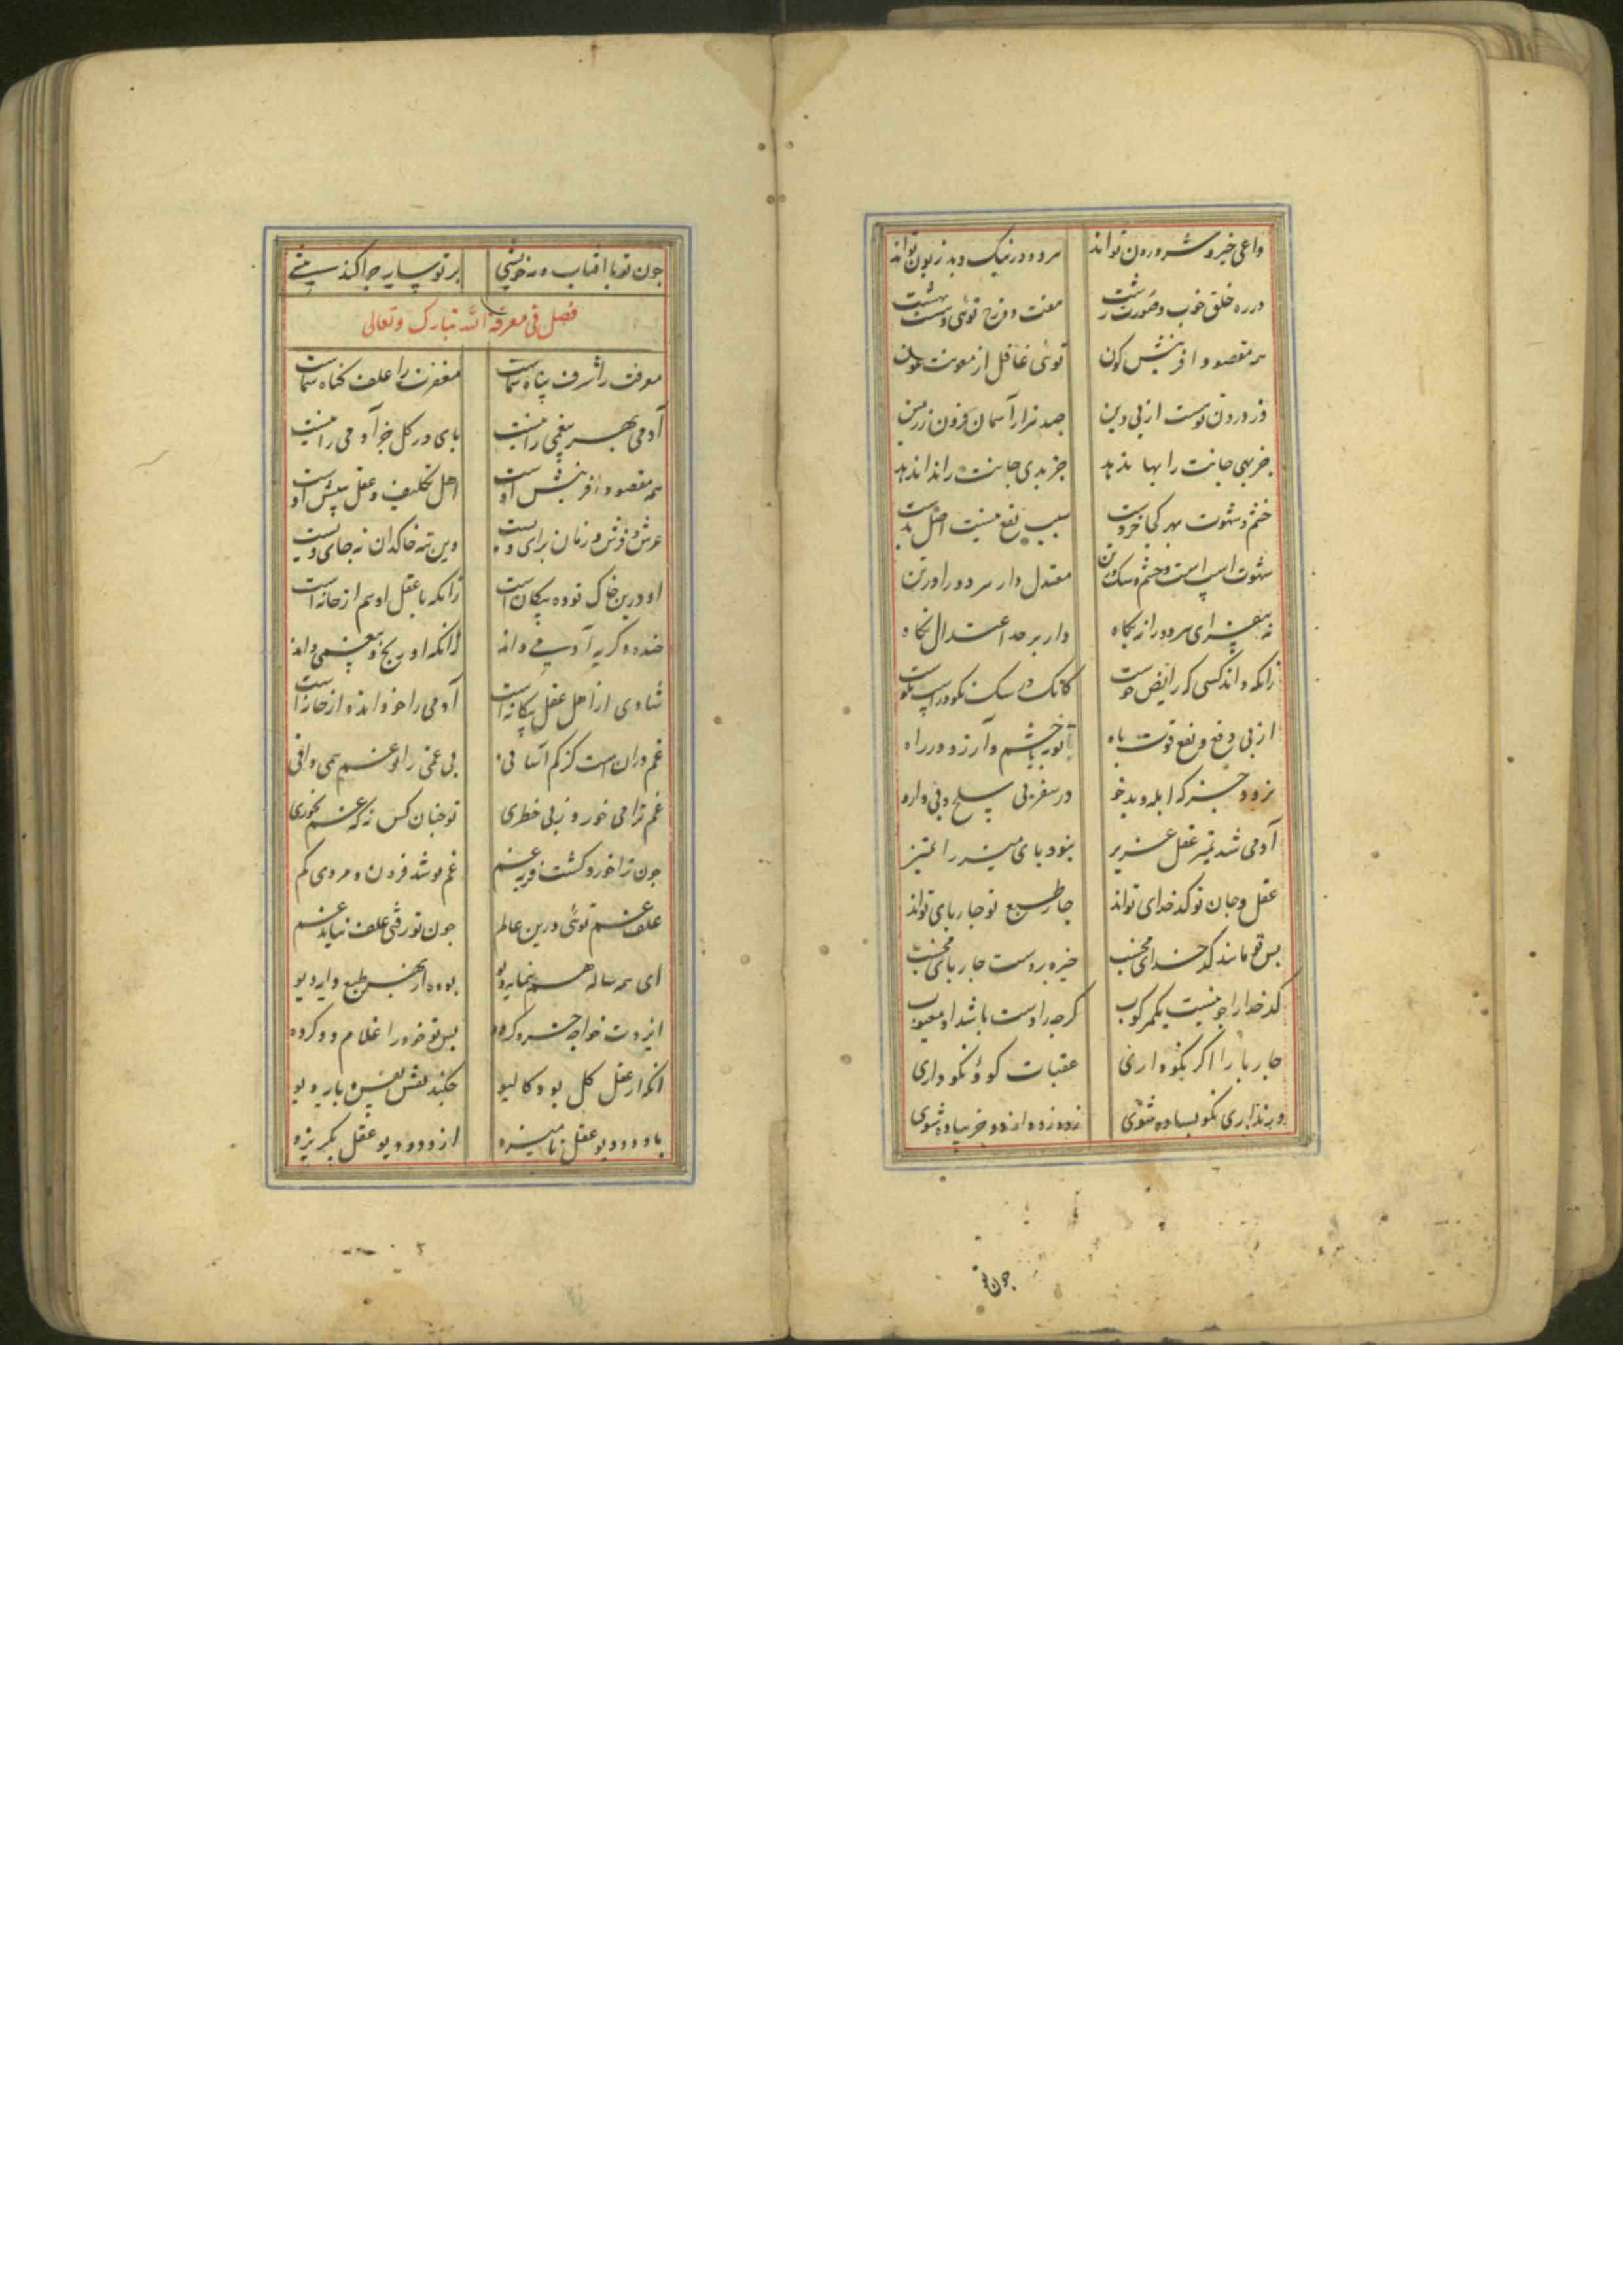 داعی خیر و شر درون تواند هر دو در نیک و بد زبون تواند
در ره خلق خوب و صورت زشت هفت دوزخ توئی و هشت بهشت
همه مقصود آفرینش کون توئی غافل از معونت عون
در درون توست از پی دین صد هزار آسمان فزون ز زمین
جز بهی جانت را بها ندهد جز بدی جانت را ندا ندهد
خشم و شهوت بهر کجا خردست سبب نفع نیست اصل بدست
شهوت اسب است و خشم سگ در تن معتدل دار هر دو را در تن
نه بیفزای هر دو را نه بکاه دار بر حد اعتدال نگاه
زانکه داند کسی که رایض خوست کانک در سگ نکو در اسب نکوست
از پی دفع و نفع قوت باه تو به با خشم و آرزو در راه
نرود جز که ابله و بدخو در سفر بی سلح و بی دارو
آدمی شد تمیز عقل عزیز نبود پای میز را تمییز
عقل و جان تو کدخدای تواند چار طبع تو چارپای تواند
پس تو مانند کدخدای مخسب خیره بر دست چارپای مخسب
کدخدا را چو نیست یک مرکوب گرچه راد است باشد او معیوب
چارپا را اگر نکو داری عقبات کوؤ نکو داری
ور نداری نکو پیاده شوی زود زود از دو خر پیاده شوی
چون تو
چون تو با آفتاب و مه خویشی بر تو سایه چرا کند پیشی
فصل فی معرفة الله تبارک وتعالی
معرفت را شرف پناه شماست مغفرت را علف گناه شماست
آدمی بهر بیغمی را نیست پای در گل جز آدمی را نیست
همه مقصود آفرینش اوست اهل تکلیف و عقل بینش اوست
عرش و فرش و زمان برای ویست وین تبه خاکدان نه جای ویست
او درین خاک توده بیگانه است زانکه با عقل او هم از خانه است
خنده و گریه آدمی داند زانکه او رنج و بیغمی داند
شادی از اهل عقل بیگانه است آدمی را خود انده از خانه است
غم در آن است کز کم آسانی بی غمی را تو غم همی دانی
غم ترا می خورد ز بی خطری تو چنان کس نه که غم نخوری
چون ترا خورد گشت فربه غم غم تو شد فزون و مردی کم
علف غم توئی درین عالم چون تو رفتی علف نیابد غم
ای همه ساله هم بنمایه دیو بوده از بهر طبع دایه دیو
ایزدت خواجه خسرو کرده پس تو خود را غلام دو کرده
آنکه از عقل کل بود کالیو چکند نقش نفس پاره دیو
با دد و دیو عقل نامیزد از دد و دیو عقل بگریزد